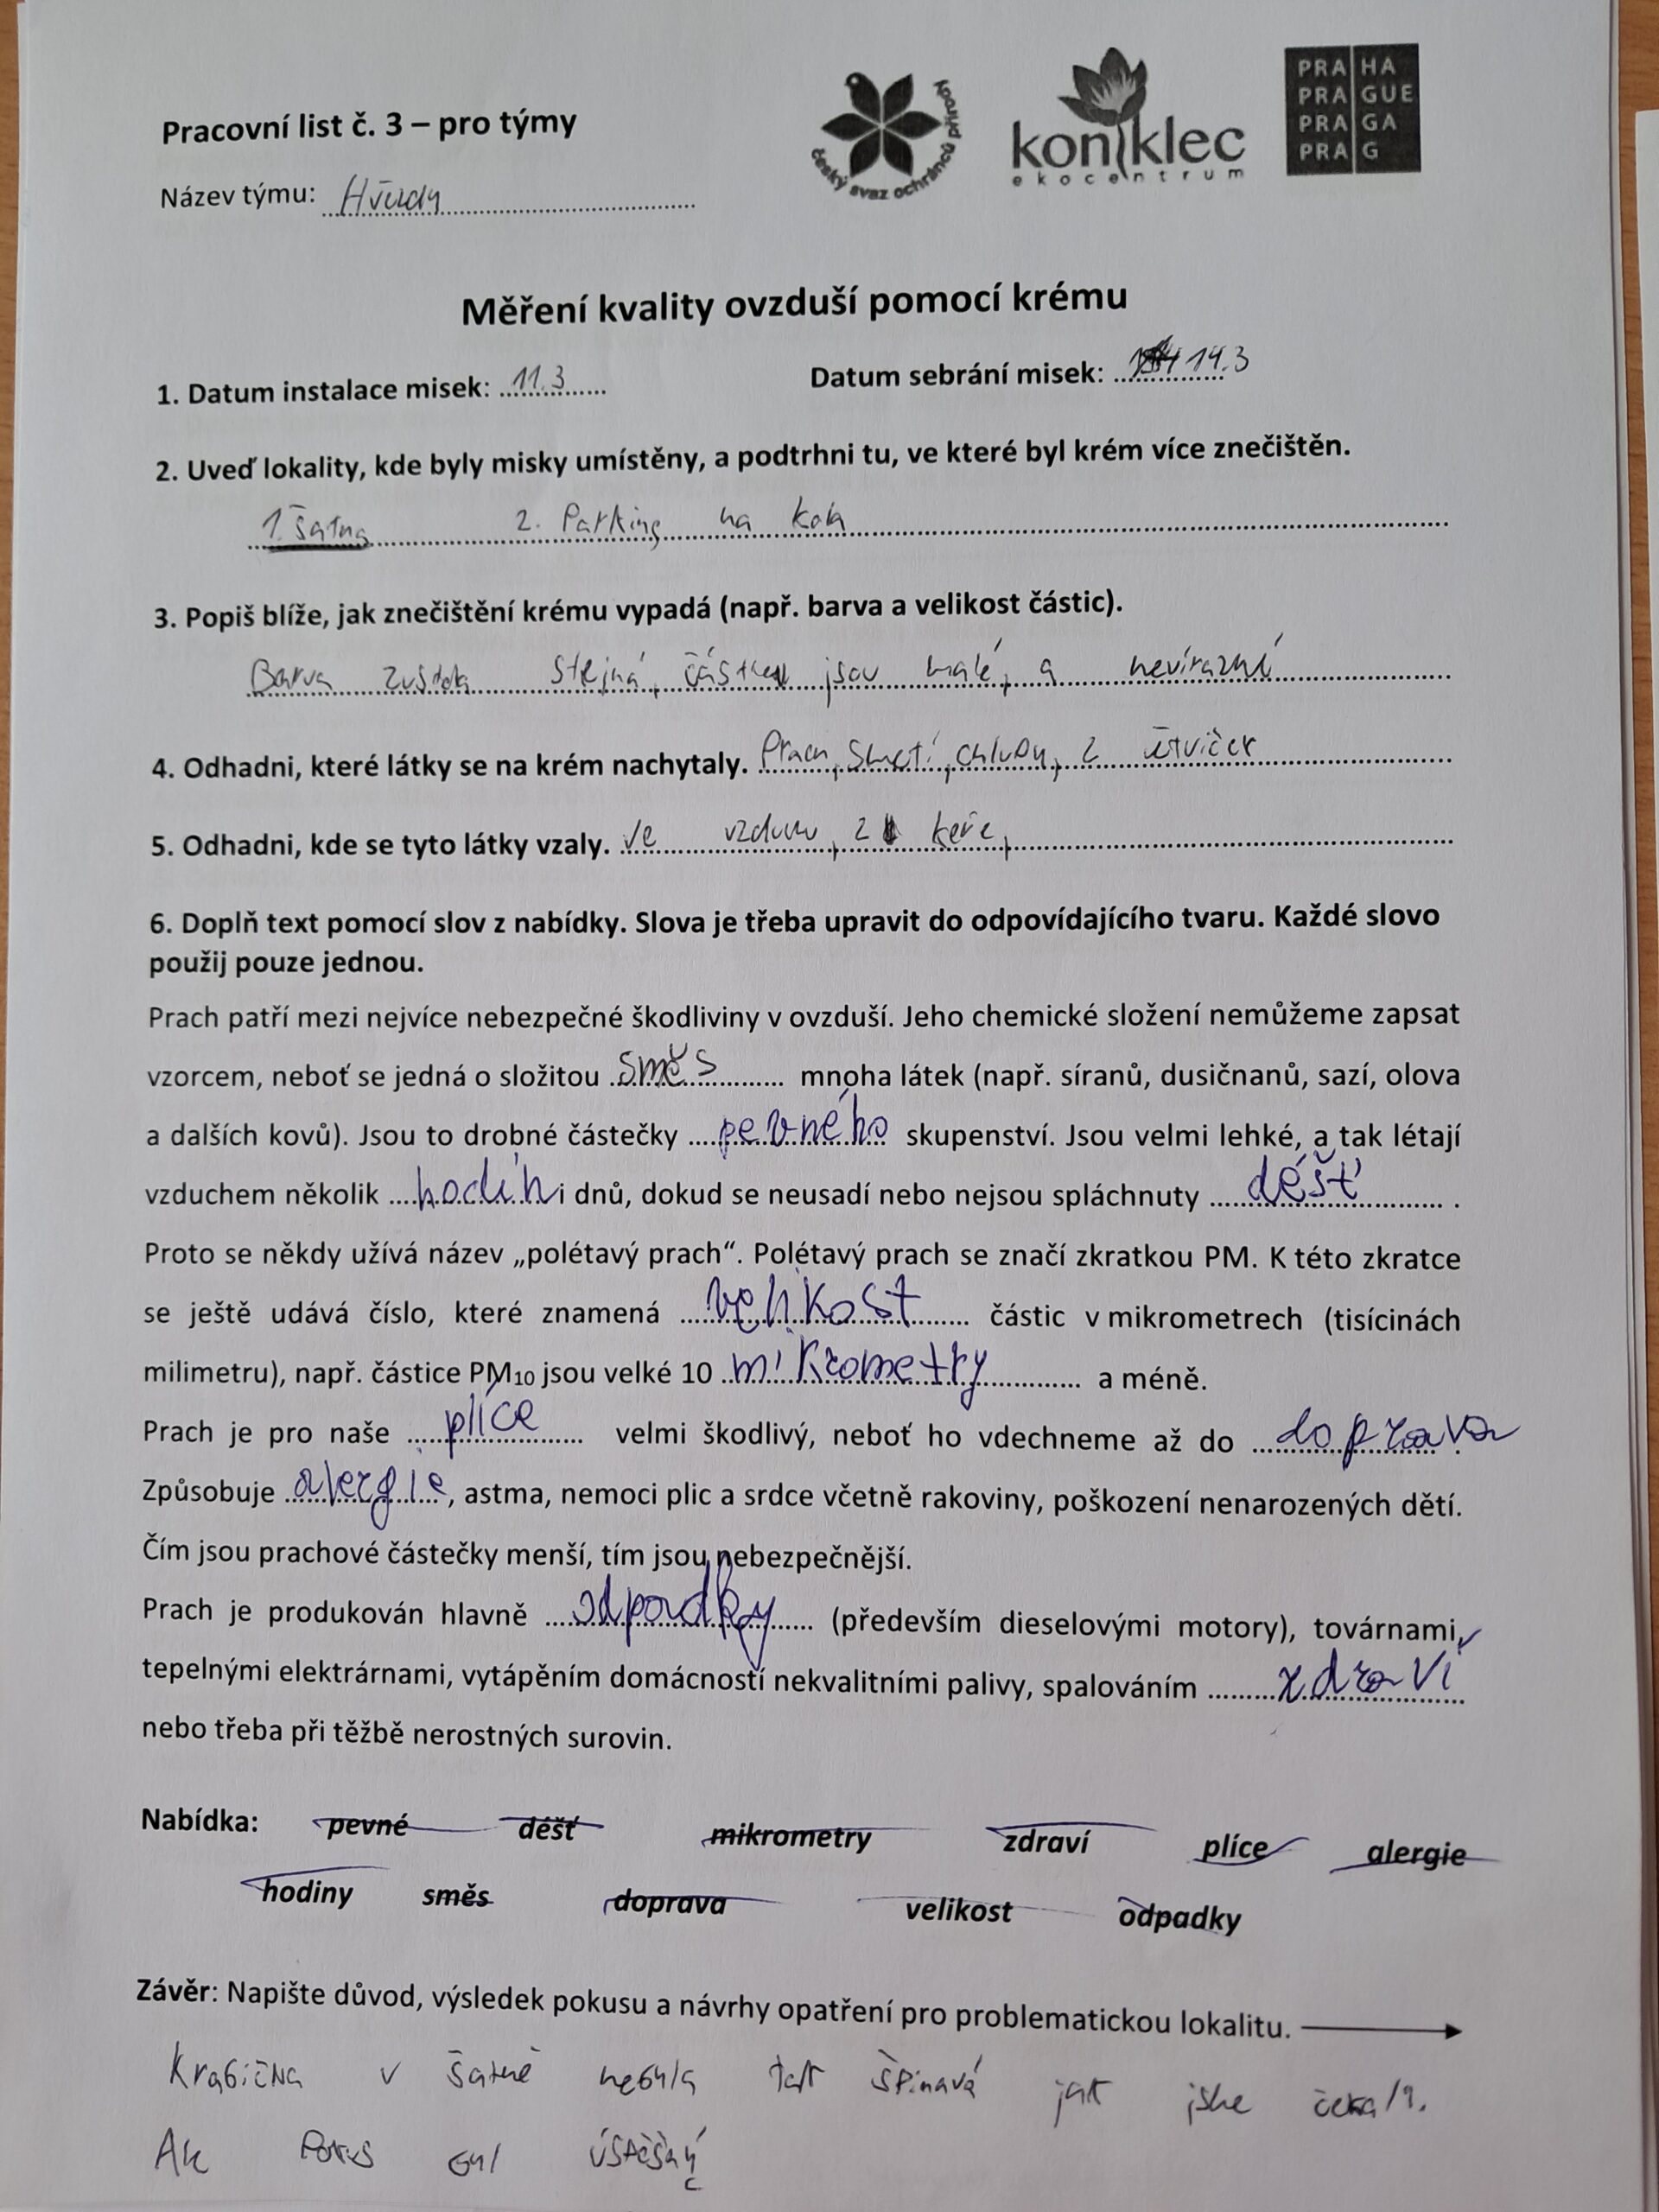 Pracovní list č. 3 – pro týmy
Název týmu: Hvězdy
český svaz ochránců přírody
koniklec
ekocentrum
PRA HA
PRA GUE
PRA GA
PRA G
Měření kvality ovzduší pomocí krému
1. Datum instalace misek: 11.3
Datum sebrání misek: 14.3
2. Uveď lokality, kde byly misky umístěny, a podtrhni tu, ve které byl krém více znečištěn.
1. šatna 2. Parking na kola
3. Popiš blíže, jak znečištění krému vypadá (např. barva a velikost částic).
Barva stejná, částice jsou malé, a nevírazní
4. Odhadni, které látky se na krém nachytaly. Prach, smetí, chlupy, 2 větviček
5. Odhadni, kde se tyto látky vzaly. Ve vzduchu, z keře,
6. Doplň text pomocí slov z nabídky. Slova je třeba upravit do odpovídajícího tvaru. Každé slovo
použij pouze jednou.
Prach patří mezi nejvíce nebezpečné škodliviny v ovzduší. Jeho chemické složení nemůžeme zapsat
vzorcem, neboť se jedná o složitou směs mnoha látek (např. síranů, dusičnanů, sazí, olova
a dalších kovů). Jsou to drobné částečky pevného skupenství. Jsou velmi lehké, a tak létají
vzduchem několik hodin i dnů, dokud se neusadí nebo nejsou spláchnuty déšť .
Proto se někdy užívá název „polétavý prach“. Polétavý prach se značí zkratkou PM. K této zkratce
se ještě udává číslo, které znamená velikost částic v mikrometrech (tisícinách
milimetru), např. částice PM10 jsou velké 10 mikrometry a méně.
Prach je pro naše plíce velmi škodlivý, neboť ho vdechneme až do doprava
Způsobuje alergie, astma, nemoci plic a srdce včetně rakoviny, poškození nenarozených dětí.
Čím jsou prachové částečky menší, tím jsou nebezpečnější.
Prach je produkován hlavně odpadky (především dieselovými motory), továrnami,
tepelnými elektrárnami, vytápěním domácností nekvalitními palivy, spalováním zdraví
nebo třeba při těžbě nerostných surovin.
Nabídka: pevné déšť mikrometry zdraví plíce alergie
hodiny směs doprava velikost odpadky
Závěr: Napište důvod, výsledek pokusu a návrhy opatření pro problematickou lokalitu.
Krabička v šatně nebyla tak špinavá jak jsme čekali.
Ale Pokus byl úspěšný